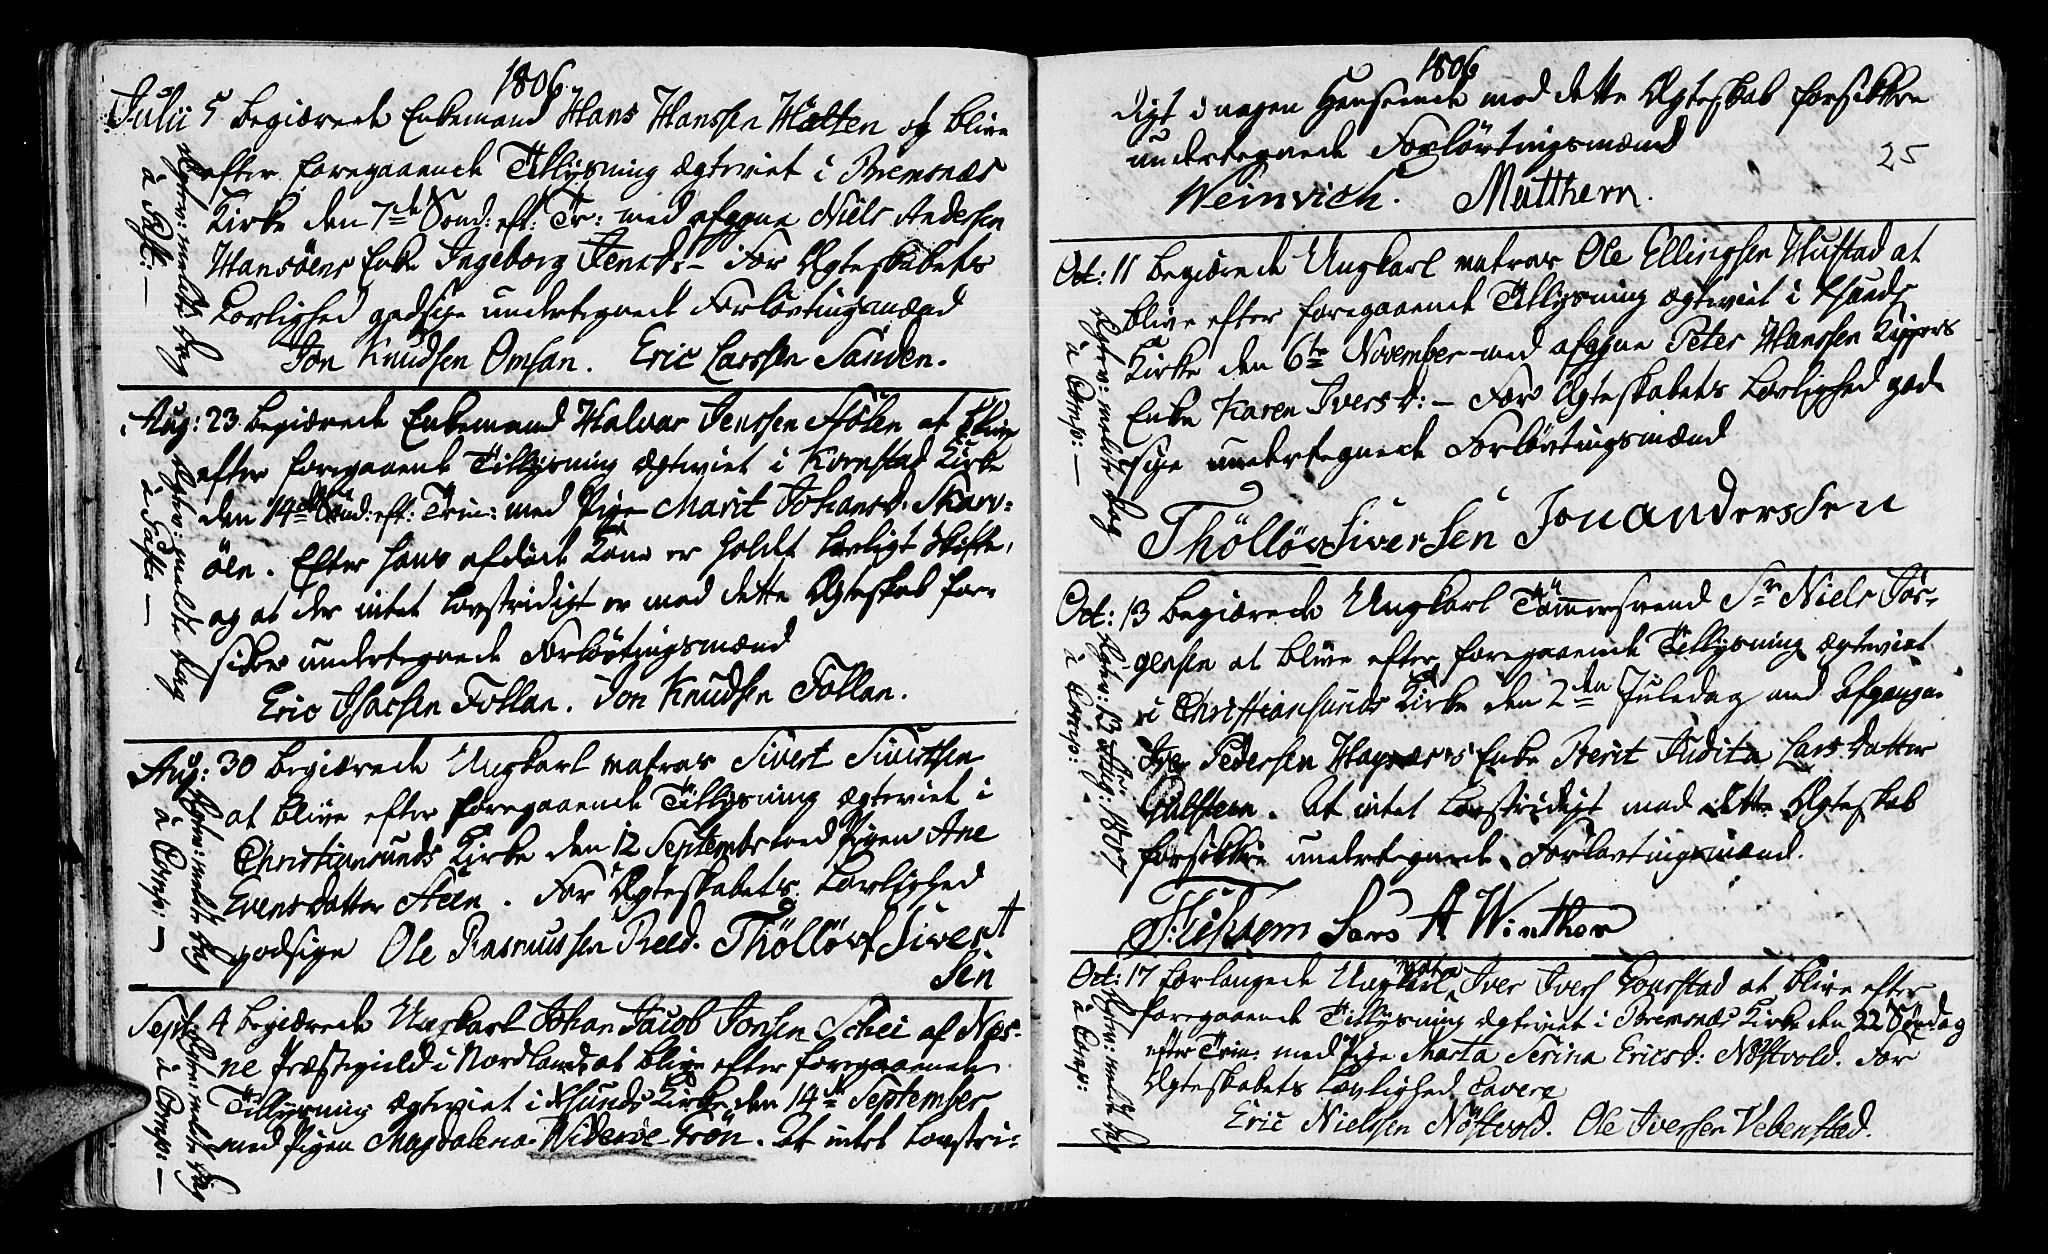 1806.
Julii 5 Begiærede Enkemand Hans Hanssen Halten og blive
efter foregaaende Tillysning ægteviet i Bremsnæs
Kirke den 7de Sønd: eft: Tr: med afgagne Niels Andersen
Hansöens Enke Ingeborg Jensd:– For Ægteskabets
Lovlighed godsige undertegnede Forlovtingsmænd
Jon Knudsen Omsan. Eric Larssen Sanden.
Ægtev: meldte Dag
à
Aug: 23. Begiærede Enkemand Halvar Jenssen Stölen at blive
efter foregaaende Tillysning ægteviet i Kornstad Kirke
den 14de Sønd: eft: Trin: med Pige Marit Johansd: Skarv-
öen. Efter hans afdöde Kone er holdt lovligt Skifte,
og at der intet Lovstridigt er med dette Ægteskab for-
sikre undertegnede Forlovtingsmænd
Eric Isacsen Follan. Jon Knudsen Follan.
Ægtev: meldte Dag
à
Aug: 30 Begiærede Ungkarl matros Sivert Sivertsen
at blive efter foregaaende Tillysning ægteviet i
Christiansunds Kirke den 12 September med Pigen Ane
Evensdatter Steen. For Ægteskabets Lovlighed
godsige Ole Rasmussen Reed. Thöllöv Sivert
Sen
Ægtev: meldte Dag
à Comp: –
Sept. 4 Begiærede Ungkarl Johan Jacob Jonsen Schei af Næs-
ne Præstegield i Nordland at blive efter foregaaende
Tillysning ægteviet i Xsunds Kirke den 14de September
med Pigen Magdalena Wideröe Grön. At intet Lovstri-
Ægtev: meldte Dag
à Comp: –
1806
25
digt i nogen Henseende med dette Ægteskab forsikkre
undertegnede Forlövtingsmænd
Weinvich. Mutthern.
Oct: 11 Begiærede Ungkarl matros Ole Ellingsen Hustad at
blive efter foregaaende Tillysning ægteviet i Xsunds
Kirke den 6te November med afgagne Peter Hanssen Kippers
Enke Karen Iversd: – For Ægteskabets Lovlighed god-
sige undertegnede Forlövtingsmænd
Thöllöv Siversen Jon Anderssen
Ægtev: meldte Dag
à Comp: –
Oct: 13 Begiærede Ungkarl Tömmersvend Sr Niels Jör-
gensen at blive efter foregaaende Tillysning ægteviet
i Christiansunds Kirke den 2den Juledag med Afgangne
Iver Pedersen Hagnæs's Enke Berit Judita Larsdatter
Gulsteen. At intet Lovstridigt med dette Ægteskab
forsikkre undertegnede Forlovtingsmænd.
Lars A Winther
Ægtev: 1807
à Comp:
Oct: 17 Forlangede Ungkarl matr: Iver Ivers at blive efter
foregaaende Tillysning ægteviet i Bremsnæs Kirke den 22 Söndag
efter Trin: med Pige Marta Serina Ericsd: Nöstvold. For
Ægteskabets Lovlighed cavere
Eric Nielssen Nöstvold. Ole Iverssen Vebenstad.
Ægtev: meldte Dag
à Comp: